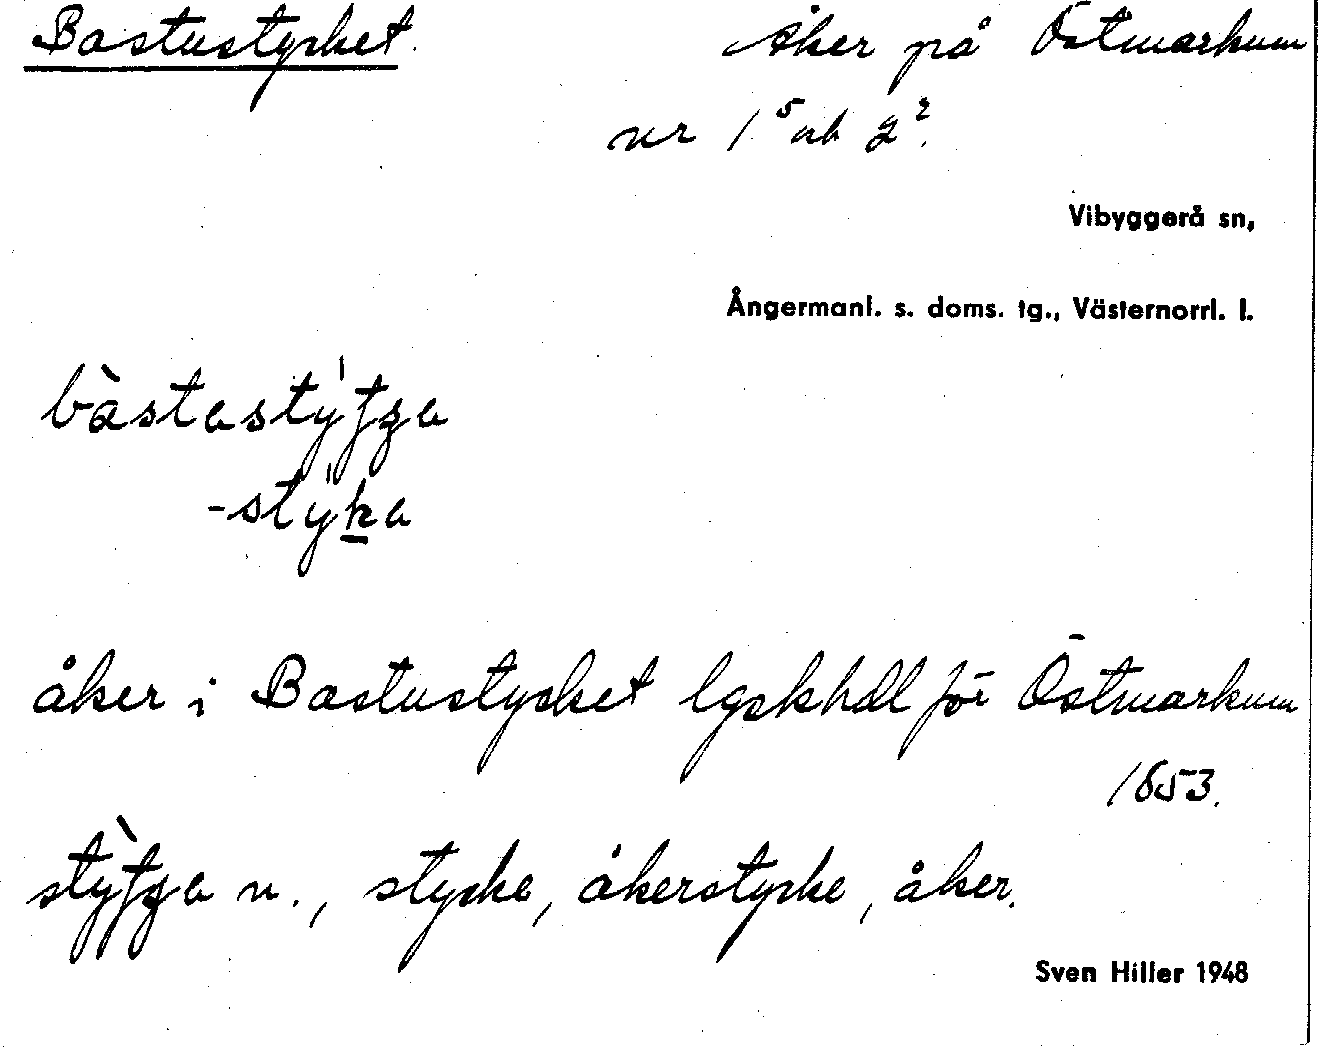 Bastustycket. Åker på Östmarkum
nr 1⁵ och 2².
Vibyggerå sn,
Ångermanl. s. doms. tg., Västernorrl. l.
åker i Bastustycket lgskhdl för Östmarkum
1653.
n., stycke, åkerstycke, åker.
Sven Hiller 1948